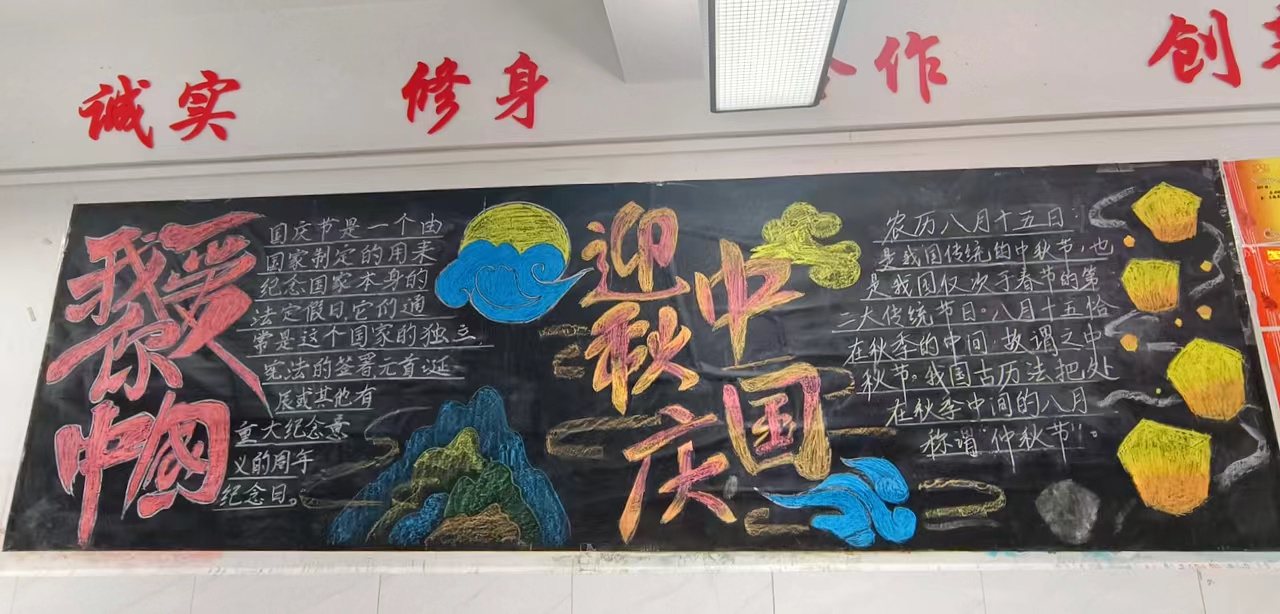 诚实
修身
作
创
我爱
你
中國
国庆节是一个由
国家制定的用来
纪念国家本身的
法定假日,它们通
常是这个国家的独立、
宪法的签署元首诞
辰或其他有
重大纪念意
义的周年
纪念日。
迎中
秋国
庆
农历八月十五日,
是我国传统的中秋节,也
是我国仅次于春节的第
二大传统节日。八月十五恰
在秋季的中间,故谓之中
秋节。我国古历法把处
在秋季中间的八月
称谓“仲秋节”。